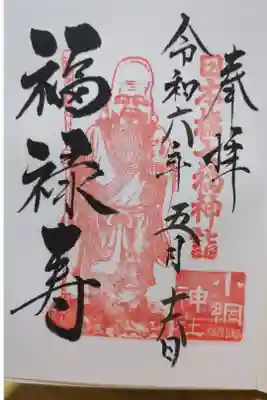 奉拝
日本橋七福神詣
小網神社
令和六年五月十六日
福禄寿